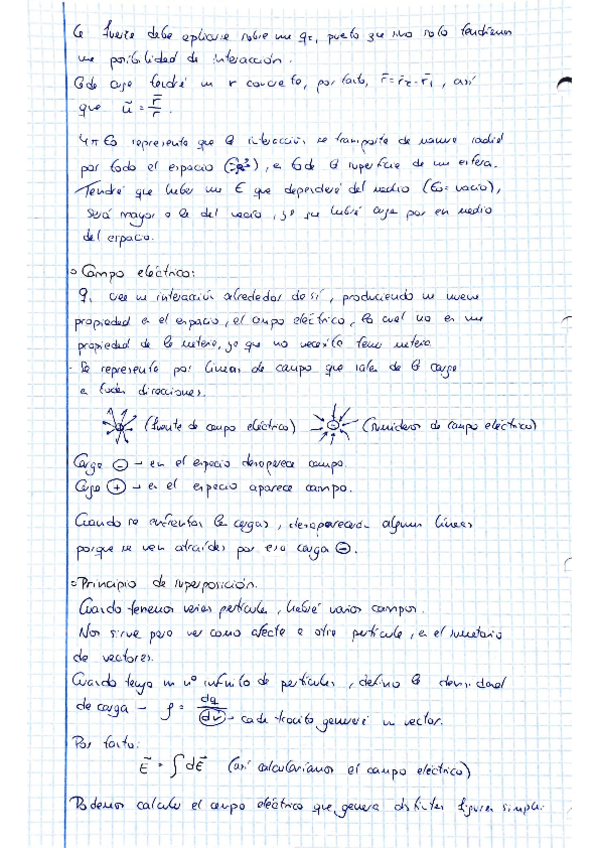 La fuerza debe aplicarse sobre una q₂, puesto que sino solo tendríamos
una posibilidad de interacción.
Cada carga tendrá un r concreto, por tanto, r̄ = r̄₂ - r̄₁, así
que ū = r̄/r.
4πε₀ representa que la interacción se transporta de manera radial
por todo el espacio, es toda la superficie de una esfera.
Tendré que haber un ε que dependerá del medio (ε₀ = vacío),
será mayor a la del vacío, ya que habrá carga por en medio
del espacio.
Campo eléctrico:
q₁ crea una interacción alrededor de sí, produciendo una nueva
propiedad en el espacio, el campo eléctrico, la cual no es una
propiedad de la materia, ya que no necesita tener materia.
- Se representa por líneas de campo que salen de la carga
a todas direcciones.
(fuente de campo eléctrico) (sumideros de campo eléctrico)
Carga ⊖ → en el espacio desaparece campo.
Carga ⊕ → en el espacio aparece campo.
Cuando se enfrentan las cargas, desaparecerán algunas líneas
porque se ven atraídas por esa carga ⊖.
Principio de superposición.
Cuando tenemos varias partículas, habrá varios campos.
Nos sirve para ver como afecta a otra partícula, es el sumatorio
de vectores.
Cuando tengo un nº infinito de partículas, defino la densidad
de carga → ρ = dq/dv → cada trocito generará un vector.
Por tanto:
E⃗ = ∫dE⃗ (así calcularíamos el campo eléctrico)
Podemos calcular el campo eléctrico que genera distintas figuras simples.